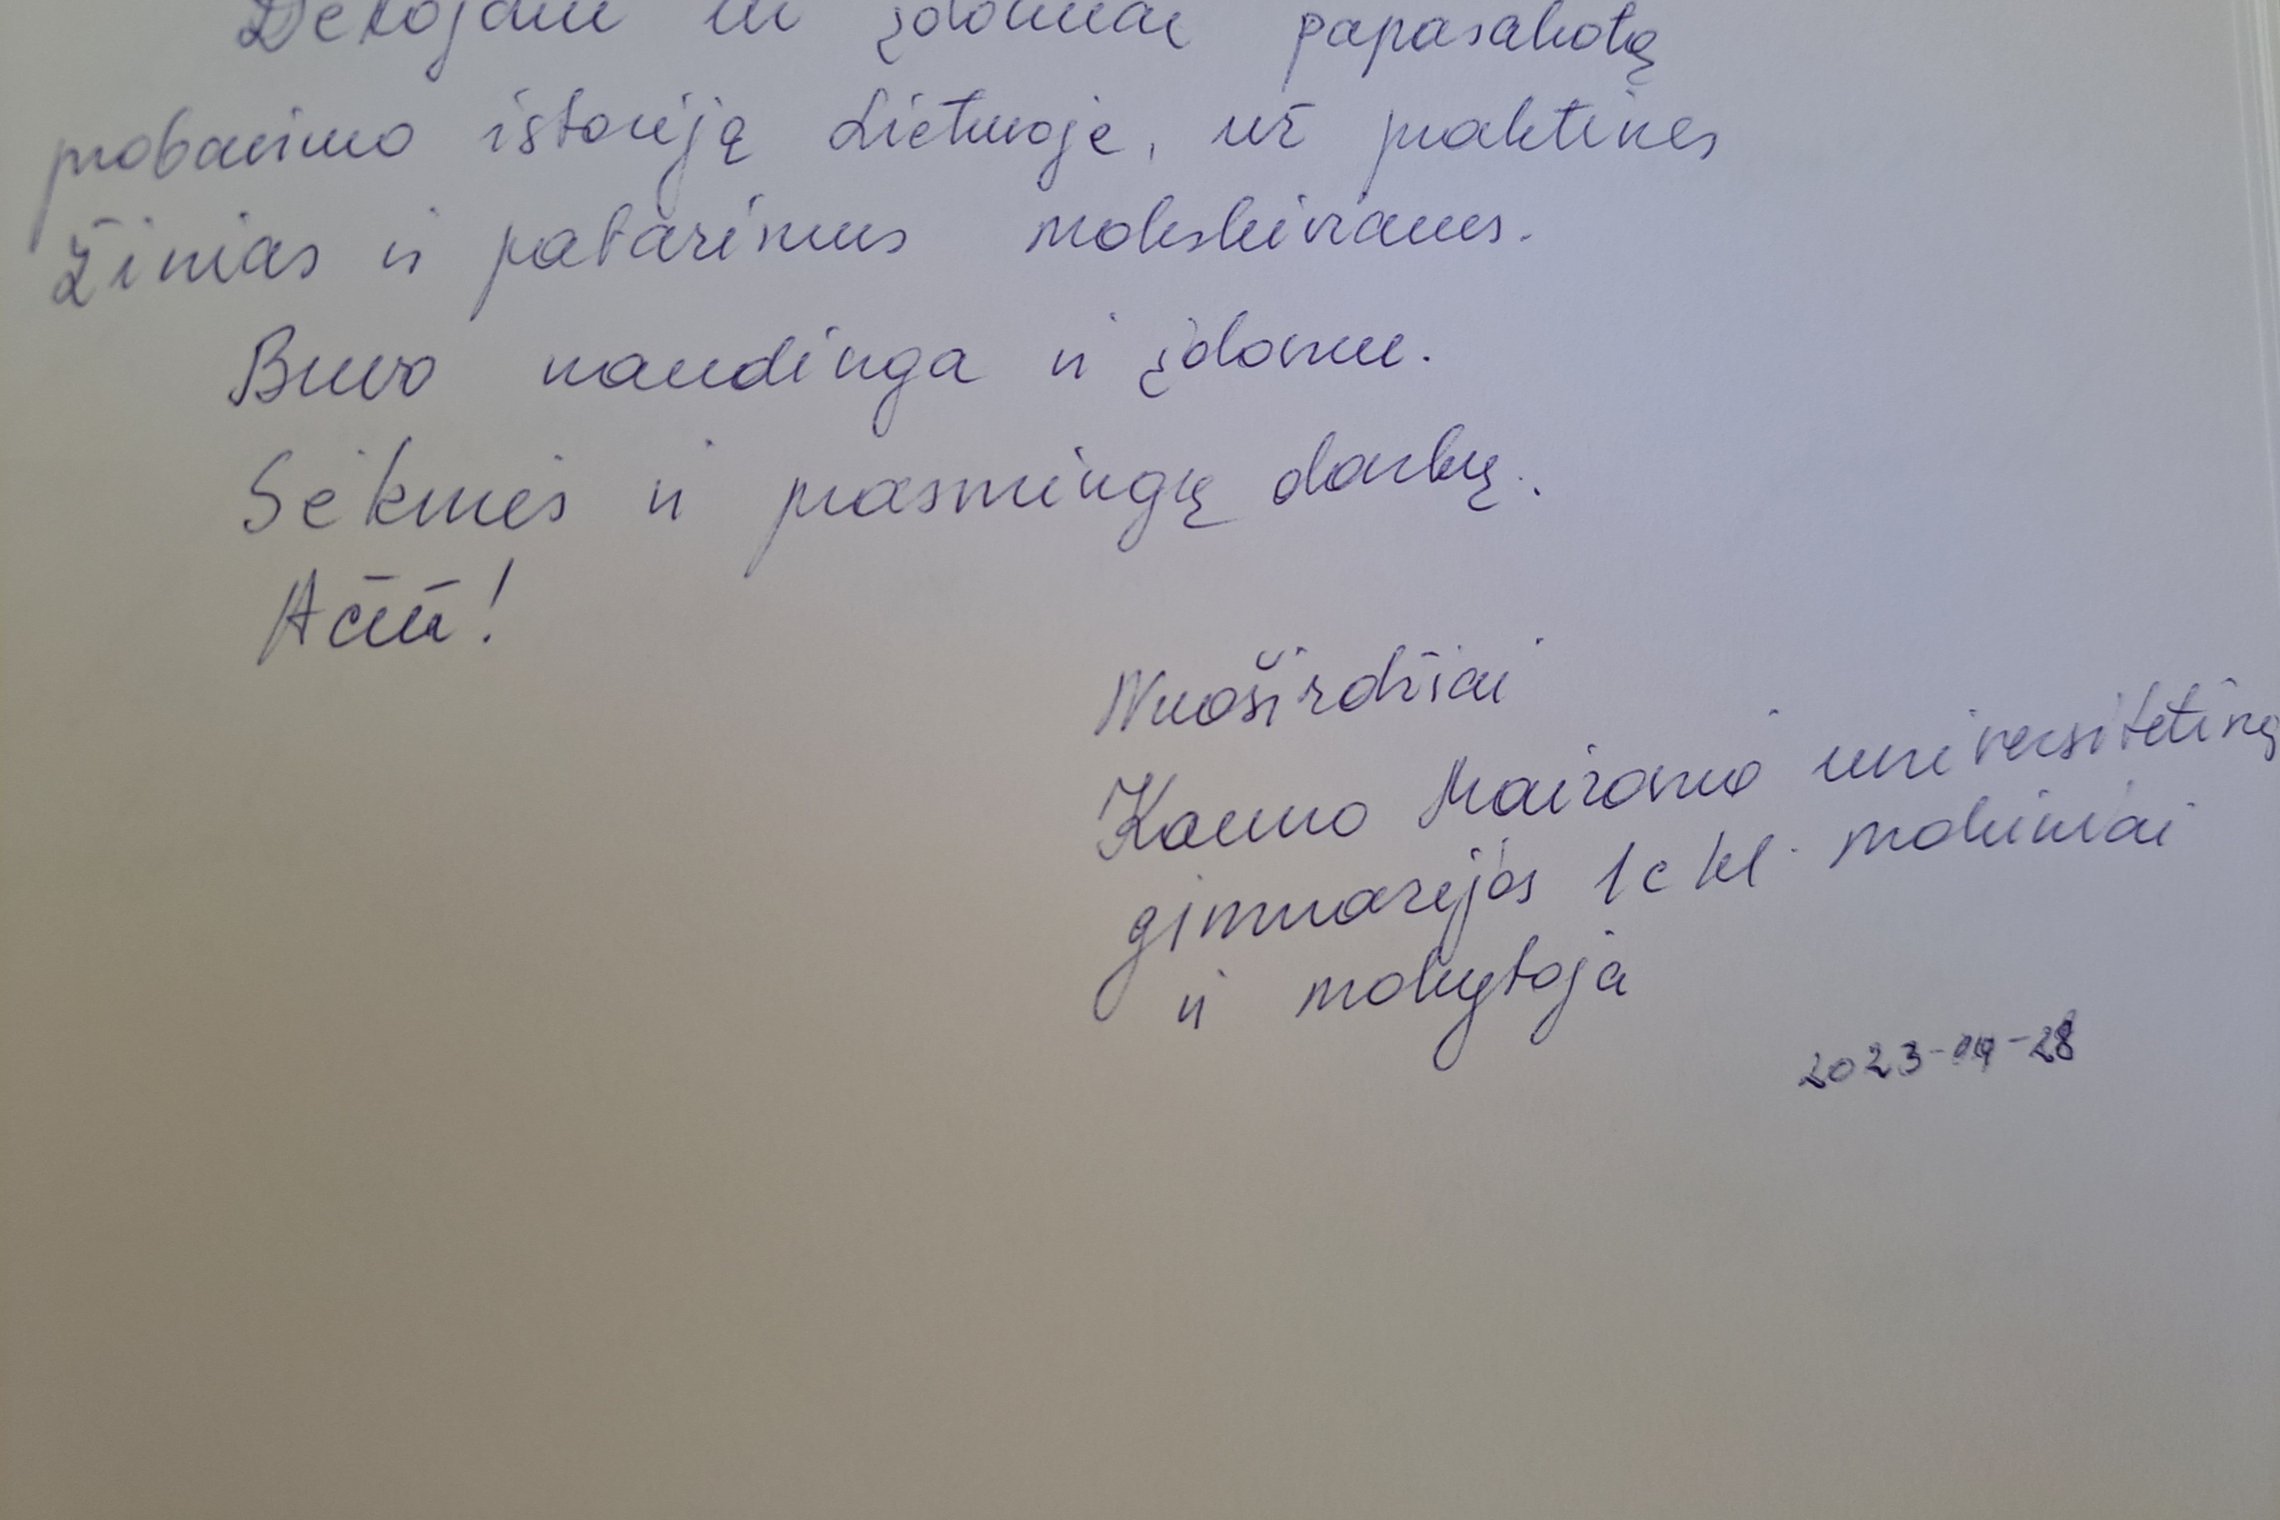 Dėkojam už įdomiai papasakotą
prabavimo istoriją Lietuvoje, už praktines
žinias ir patarimus moksleiviams.
Buvo naudinga ir įdomu.
Sėkmės ir prasmingų darbų.
Ačiū!
Nuoširdžiai
Kauno Maironio universitetinės
gimnazijos 1c kl. mokiniai
ir mokytoja
2023-04-28